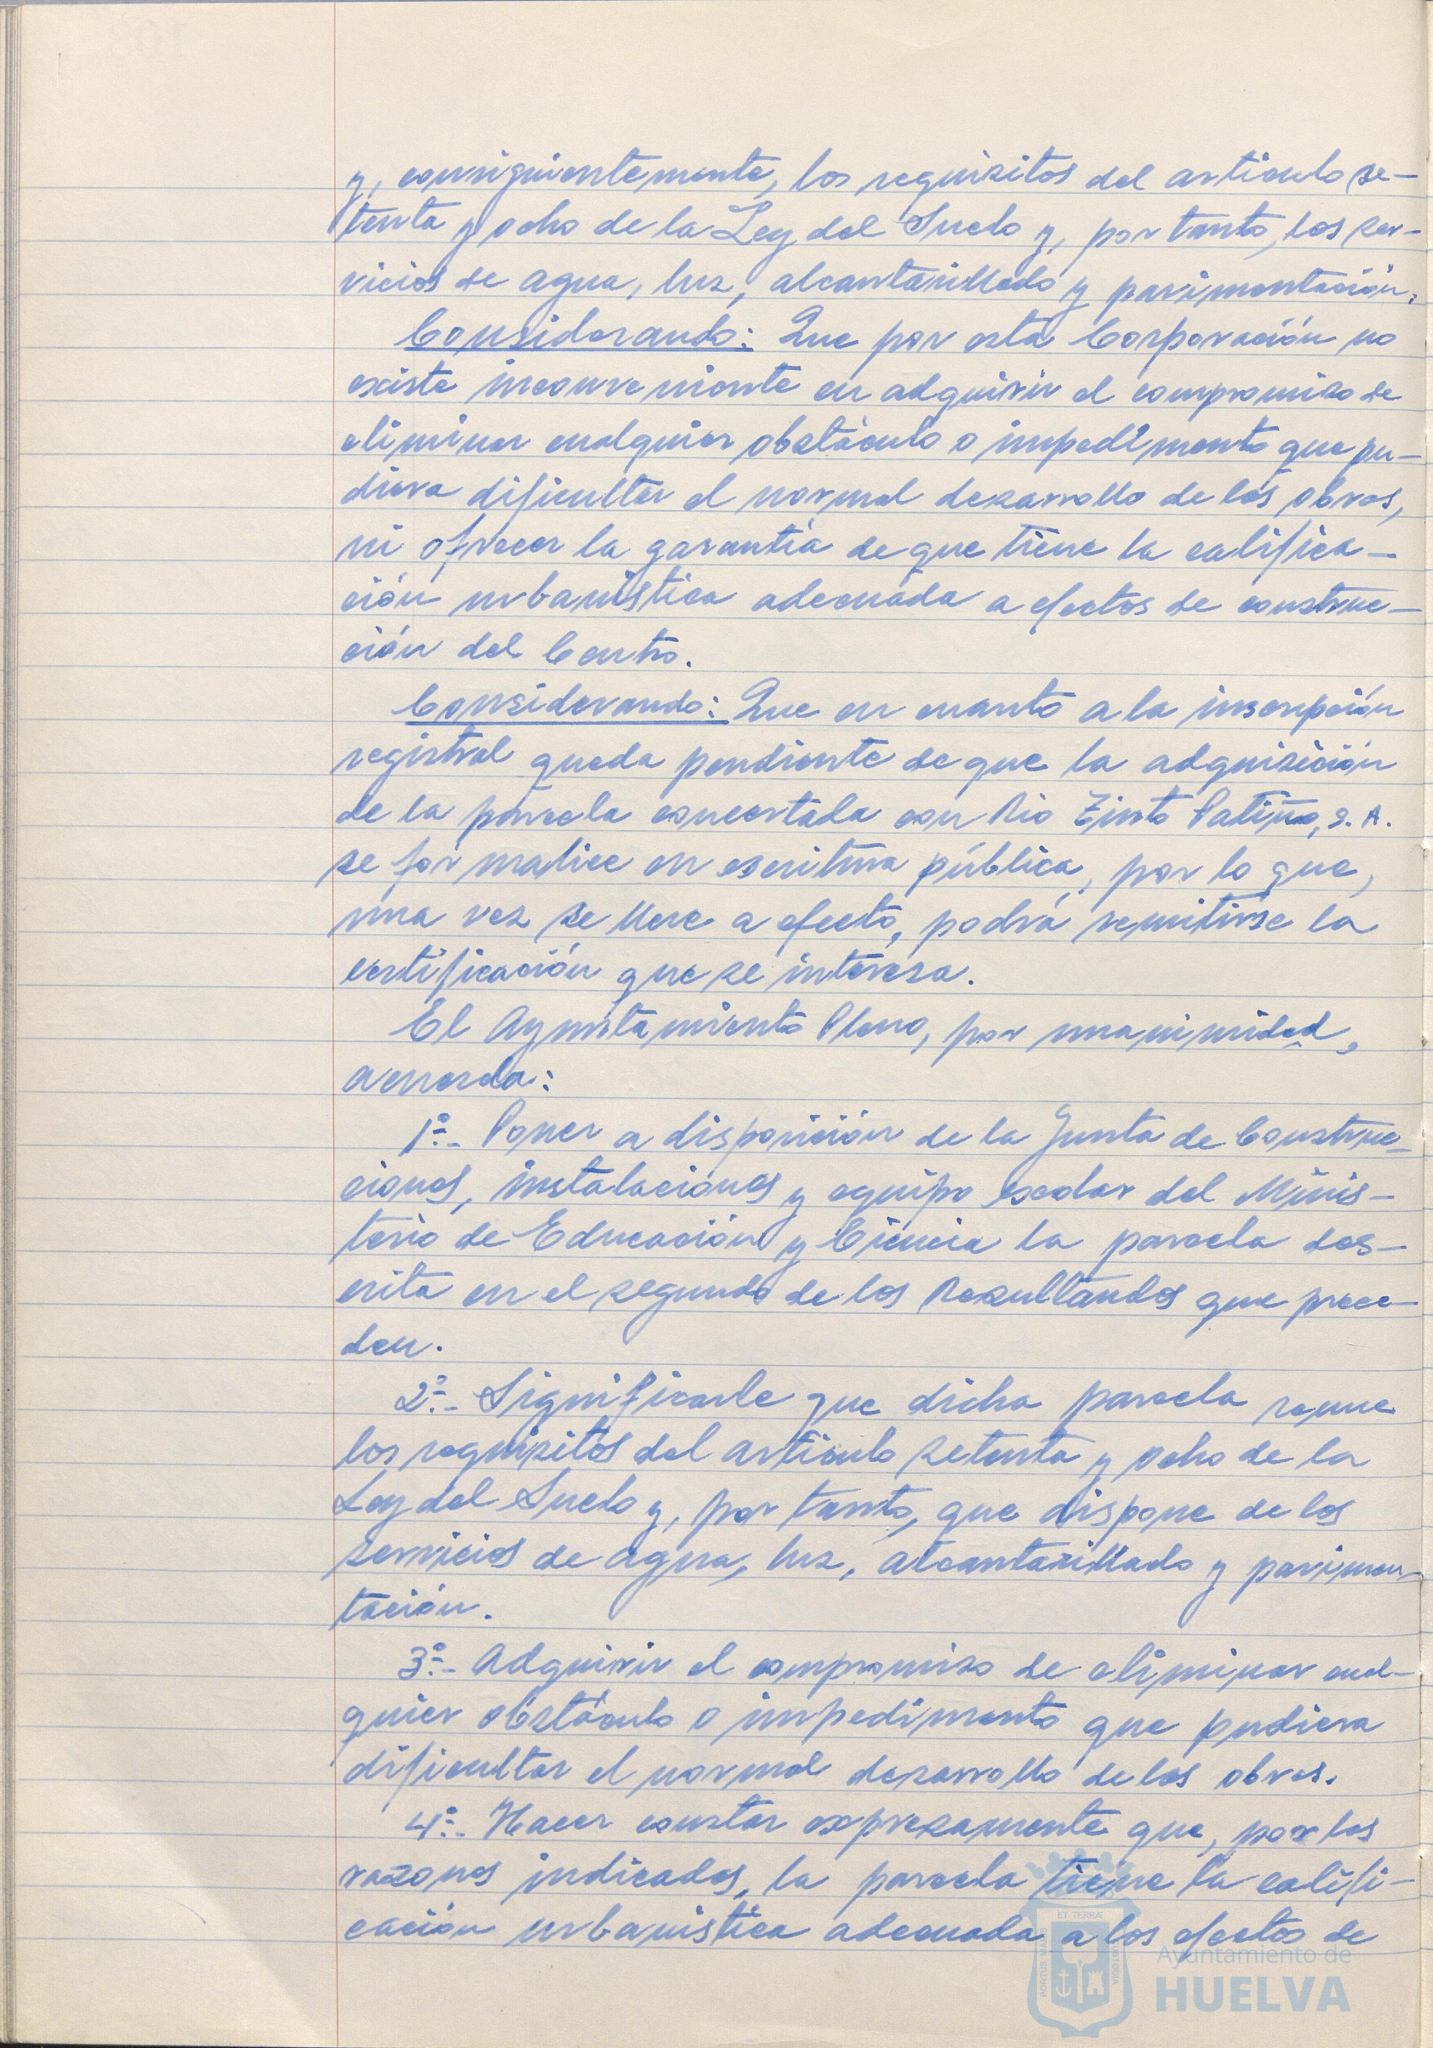 y, consiguientemente, los requisitos del articulo se-
tenta y ocho de la Ley del Suelo y, por tanto, los ser-
vicios de agua, luz, alcantarillado y pavimentación.
Considerando: Que por esta Corporación no
existe inconveniente en adquirir el compromiso de
eliminar cualquier obstáculo o impedimento que pu-
diera dificultar el normal desarrollo de las obras,
ni ofrecer la garantía de que tiene la califica-
ción urbanística adecuada a efectos de construc-
ción del Centro.
Considerando: Que en cuanto a la inscripción
registral queda pendiente de que la adquisición
de la parcela concertada con Rio Tinto Patiño, S.A.
se formalice en escritura pública, por lo que,
una vez se lleve a efecto, podrá remitirse la
certificación que se interesa.
El Ayuntamiento Pleno, por unanimidad,
acuerda:
1º.- Poner a disposición de la Junta de Construc-
ciones, instalaciones y equipo escolar del Minis-
terio de Educación y Ciencia la parcela des-
crita en el segundo de los Resultandos que prece-
den.
2º.- Significarle que dicha parcela reune
los requisitos del artículo setenta y ocho de la
Ley del Suelo y, por tanto, que dispone de los
servicios de agua, luz, alcantarillado y pavimen-
tación.
3º.- Adquirir el compromiso de eliminar cual-
quier obstáculo o impedimento que pudiera
dificultar el normal desarrollo de las obras.
4º.- Hacer constar expresamente que, por las
razones indicadas, la parcela tiene la califi-
cación urbanística adecuada a los efectos de
PORTUS MARIS ET TERRÆ CUSTODIA
Ayuntamiento de
HUELVA